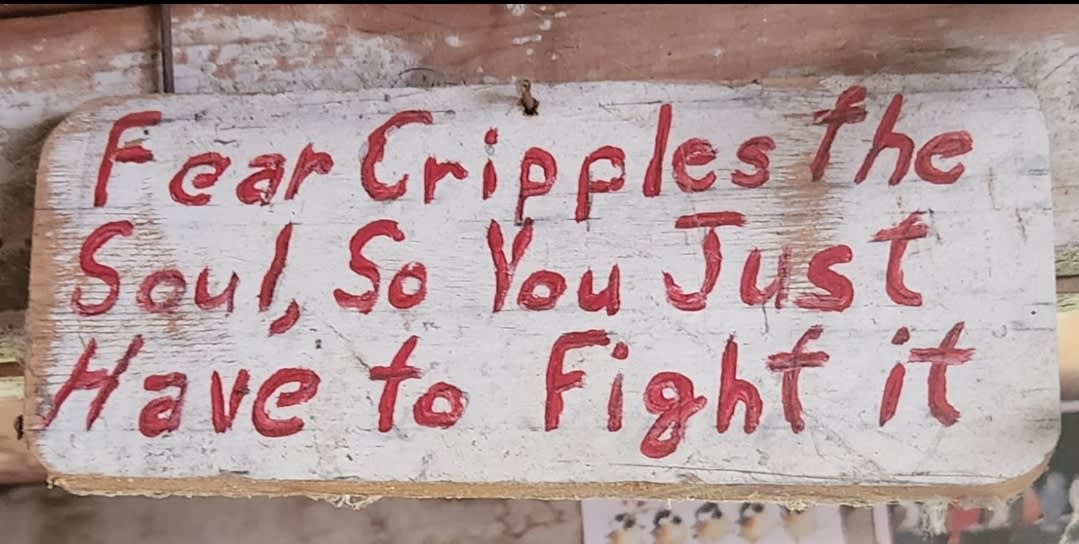 Fear Cripples the
Soul, So You Just
Have to Fight it